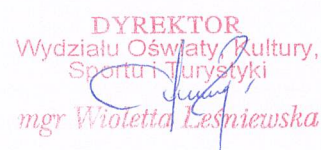 DYREKTOR
Wydziału Oświaty, Kultury,
Sportu i Turystyki
mgr Wioletta Leśniewska